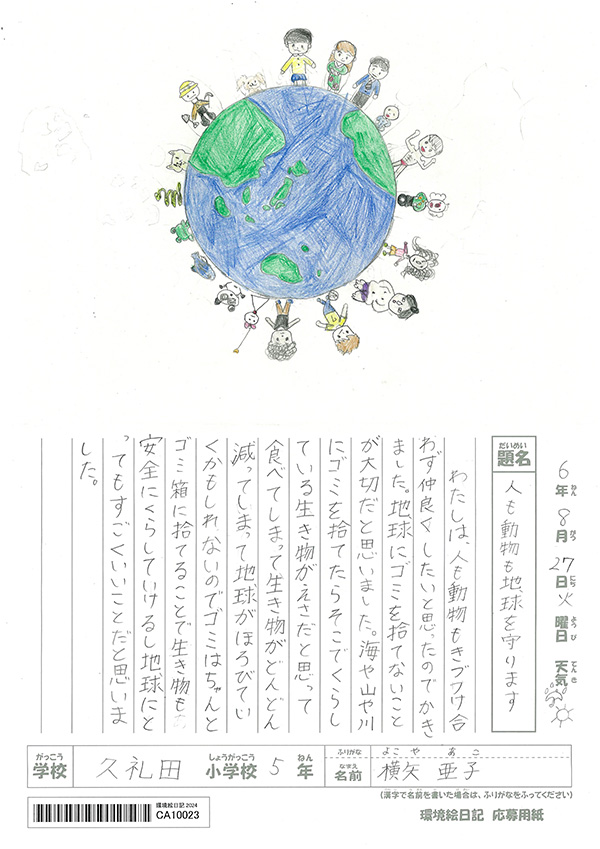 6年8月27日火曜日 天気
ねん がつ にち ようび てんき
だいめい
題名
人も動物も地球を守ります
わたしは、人も動物もきづつけ合
わず仲良くしたいと思ったのでかき
ました。地球にゴミを捨てないこと
が大切だと思いました。海や山や川
にゴミを捨てたらそこでくらし
ている生き物がえさだと思って
食べてしまって生き物がどんどん
減ってしまって地球がほろびてい
くかもしれないのでゴミはちゃんと
ゴミ箱に捨てることで生き物も
安全にくらしていけるし地球にと
ってもすごくいいことだと思いま
した。
がっこう しょうがっこう ねん ふりがな よこや あこ
学校 久礼田 小学校 5年 なまえ 名前 横矢 亜子
(漢字で名前を書いた場合は、ふりがなをふってください)
環境絵日記 応募用紙
環境絵日記2024
CA10023